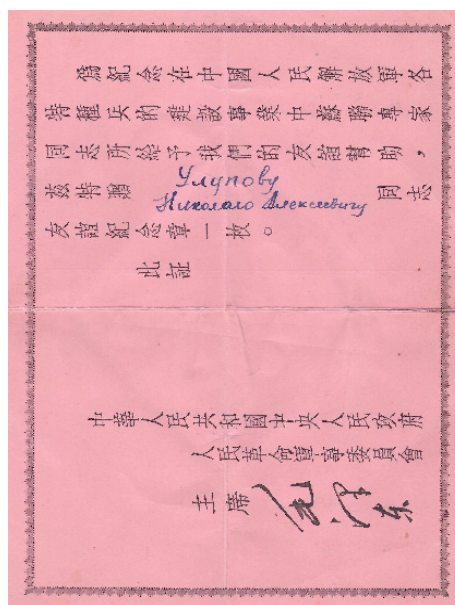 為紀念在中國人民解放軍各
特種兵的建設事業中蘇聯專家
同志所給予我們的友誼幫助，
茲特贈 Улупову Николаю Алексеевичу 同志
友誼紀念章一枚。
此証
中華人民共和國中央人民政府
人民革命軍事委員會
主席 毛泽东